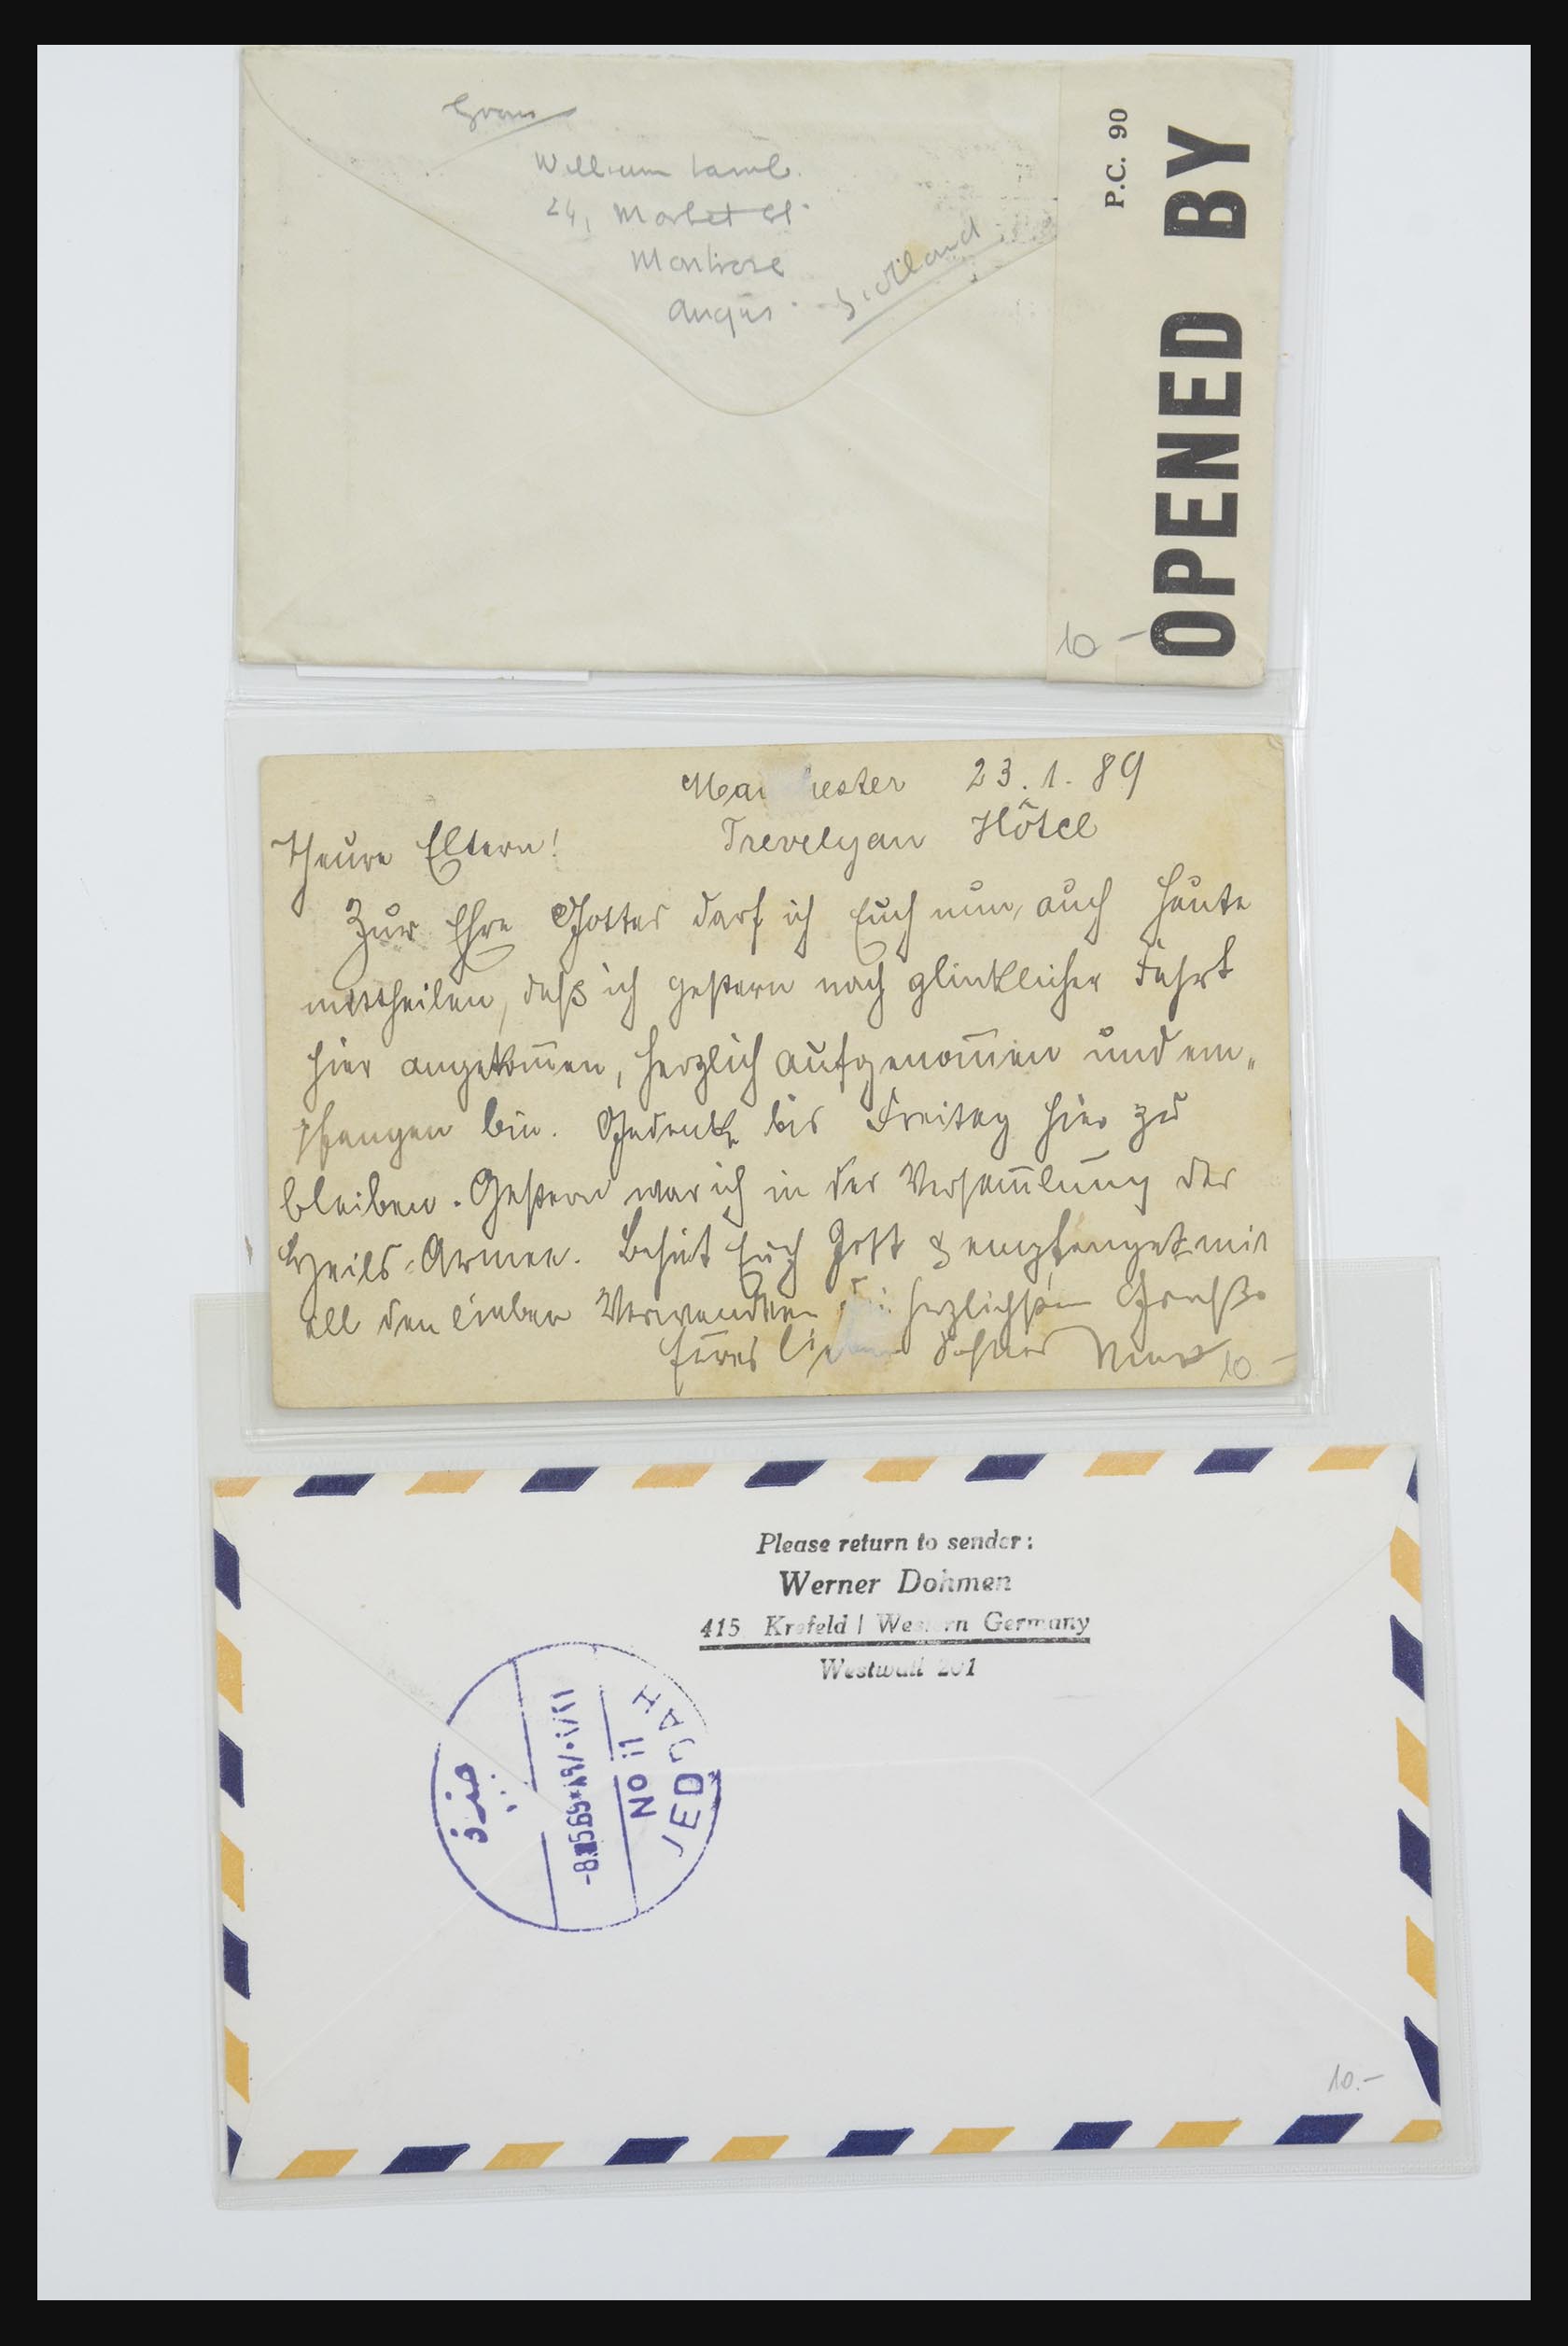 From
William Lamb.
24, Market St.
Montrose
Angus. Scotland
P.C. 90
OPENED BY
10 –
Manchester 23.1.89
Trevelyan Hôtel
Theure Eltern!
Zur Ehre Gottes darf ich Euch nun, auch heute
mittheilen, daß ich gestern nach glücklicher Fahrt
hier angekom̄en, herzlich aufgenom̄en und em„
pfangen bin. Gedenke bis Freitag hier zu
bleiben. Gestern war ich in der Versam̄lung der
Heils-Armee. Behüt Euch Gott & empfanget mit
all den lieben Verwandten die herzlichsten Grüße
Eures Sohnes
10 –
Please return to sender:
Werner Dohmen
415 Krefeld / Western Germany
Westwall 201
JEDDAH
NO 11
جدة
10.–